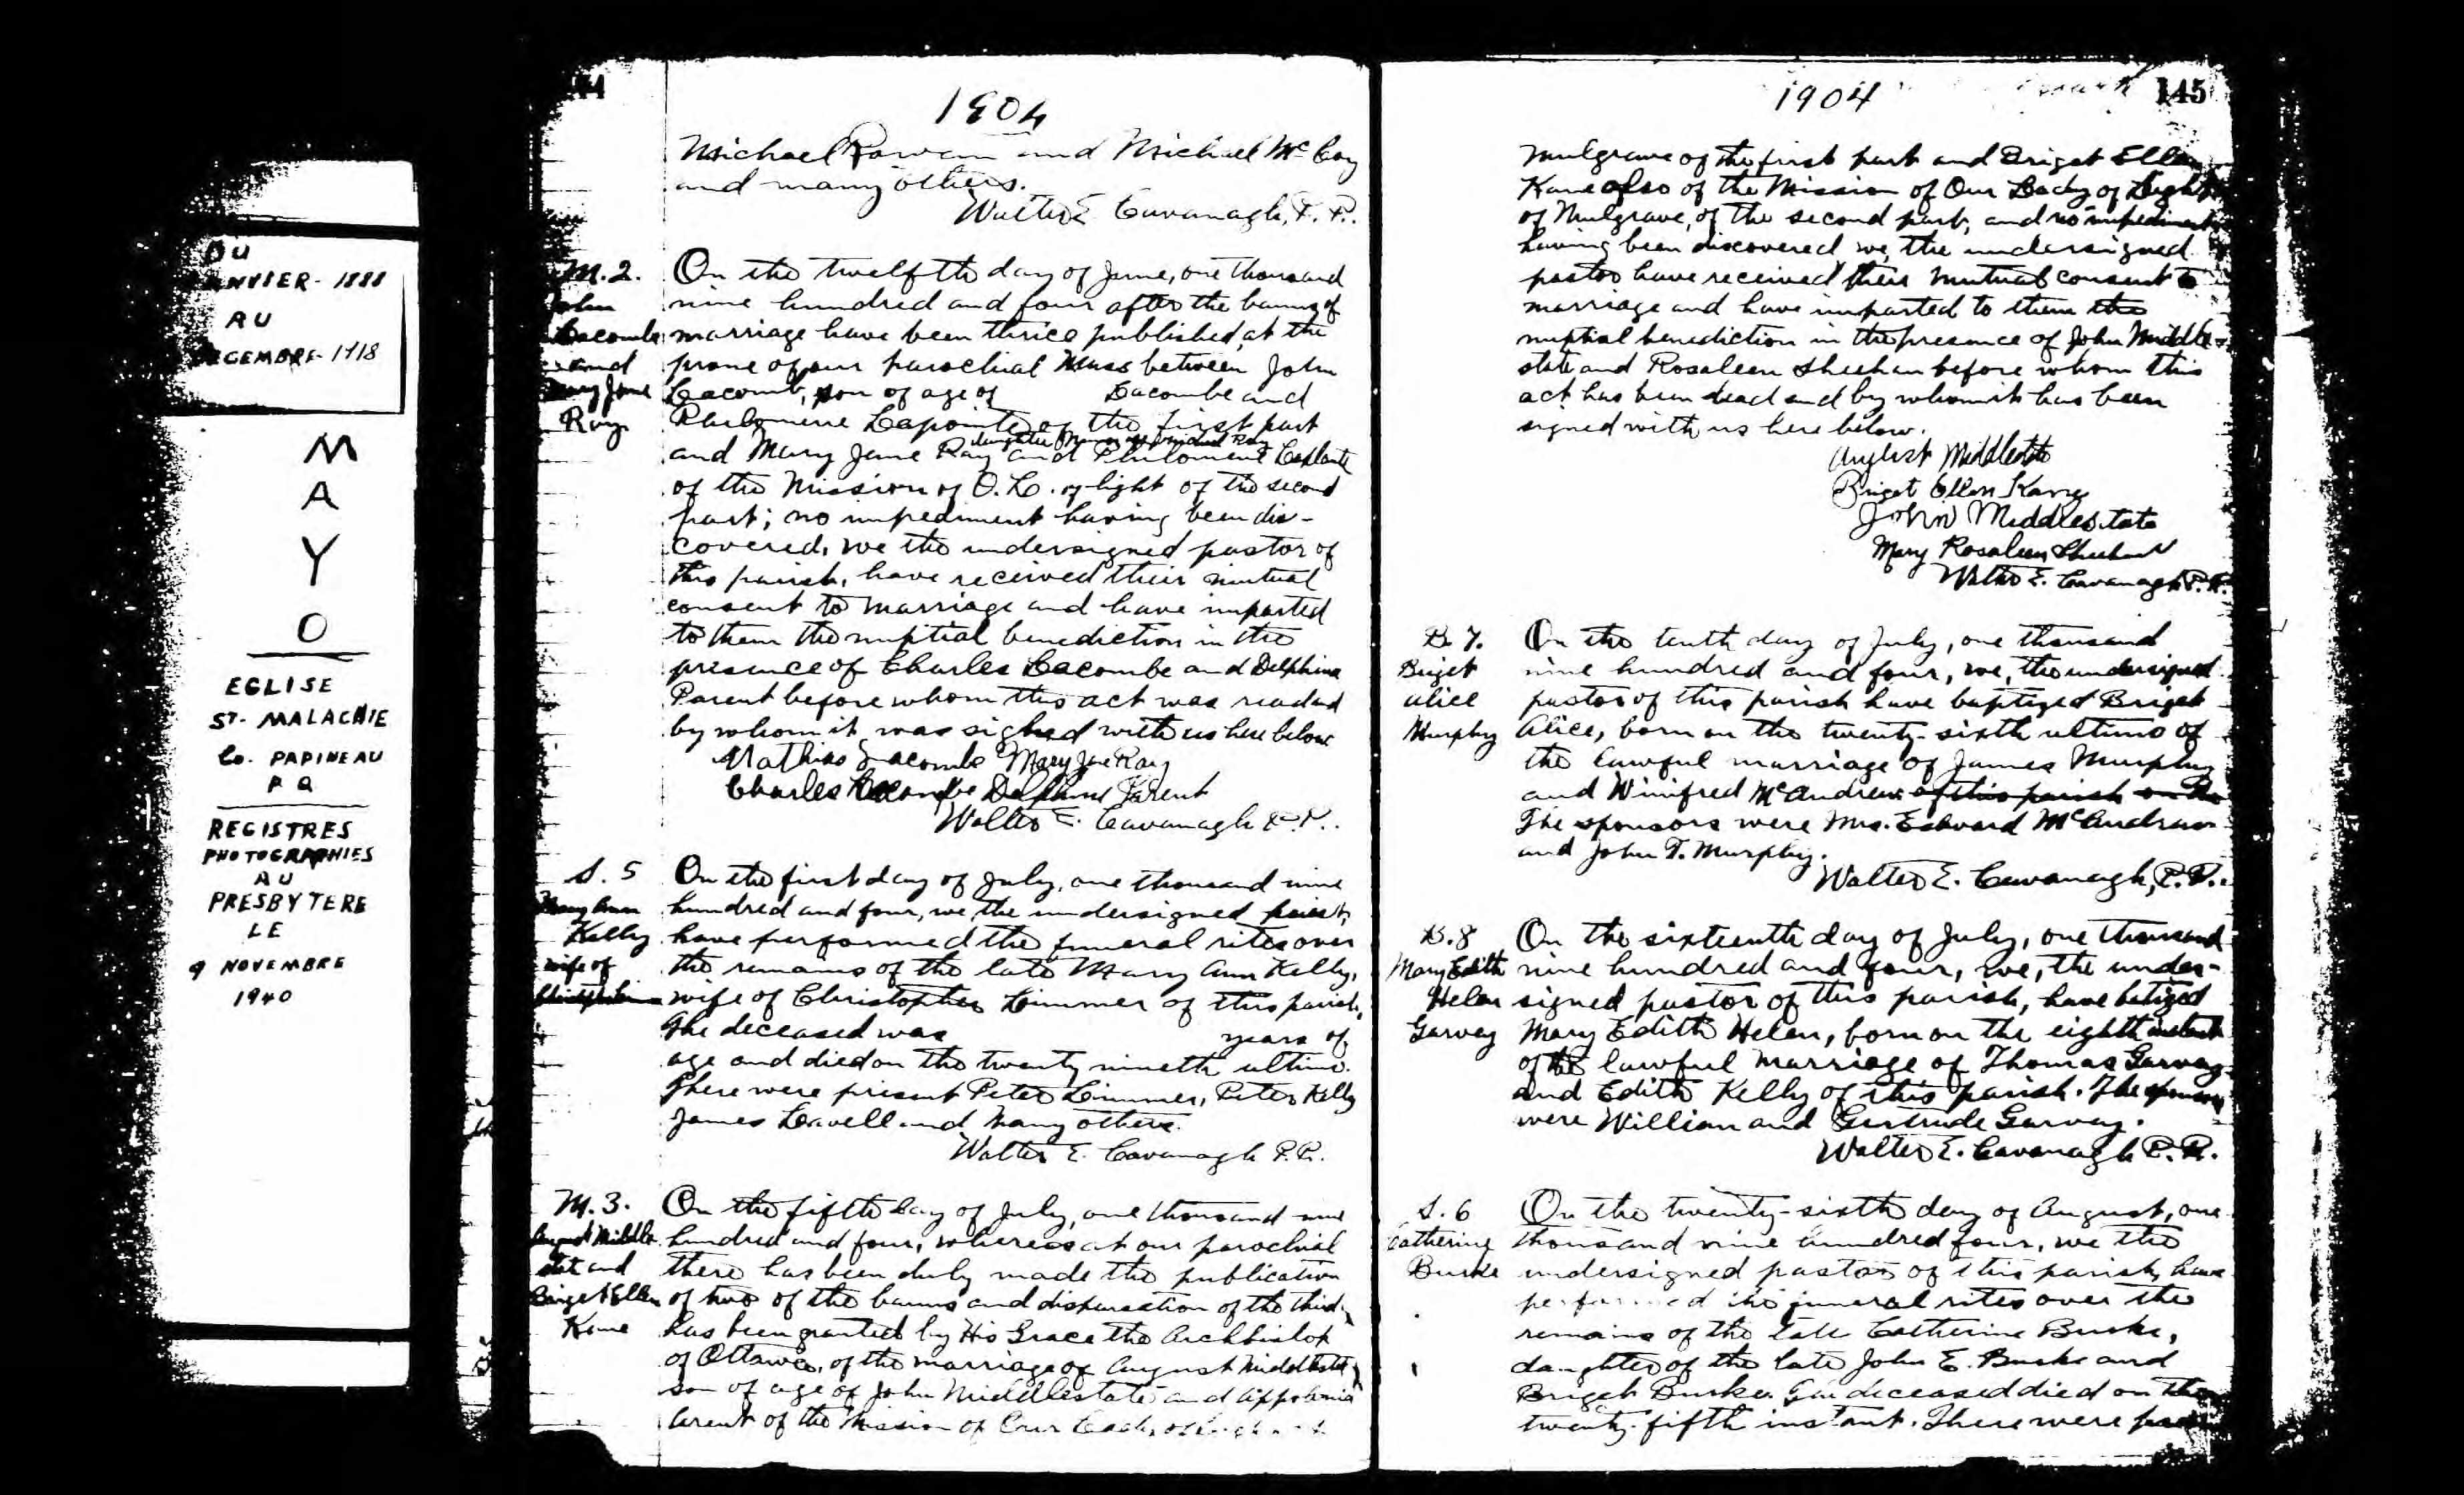 DU
ANVIER - 1888
AU
ECEMBRE - 1918
M
A
Y
O
EGLISE
ST- MALACHIE
Co. PAPINEAU
P Q
REGISTRES
PHOTOGRAPHIES
AU
PRESBYTERE
LE
9 NOVEMBRE
1940
1904
Michael and Michael McCoy
and many others.
Walter E. Cavanagh, P. P.
M. 2.
John
Lacombe
and
Mary Jane
Ray
On the twelfth day of June, one thousand
nine hundred and four after the banns of
marriage have been thrice published, at the
prone of our parochial Mass between John
Lacomb, son of age of Lacombe and
Philomene Lapointe of the first part
daughter Ray
and Mary Jane Ray and Philomene Laplante
of the Mission of O. L. of light of the second
part; no impediment having been dis-
covered, we the undersigned pastor of
this parish, have received their mutual
consent to marriage and have imparted
to them the nuptial benediction in the
presence of Charles Lacombe and Delphine
Parent before whom this act was read and
by whom it was signed with us here below
Mathias Lacombe Mary Jane Ray
Charles Lacombe Delphine Parent
Walter E. Cavanagh P.P.
S. 5
Mary Ann
Kelly
wife of
On the first day of July, one thousand nine
hundred and four, we, the undersigned priest,
have performed the funeral rites over
the remains of the late Mary Ann Kelly,
wife of Christopher Limmer of this parish,
The deceased was years of
age and died on the twenty nineth ultimo.
There were present Peter Limmer, Peter Kelly
James Lavell and many others.
Walter E. Cavanagh P.P.
M. 3.
August Middle
stat and
Briget Ellen
Kane
On the fifth day of July, one thousand nine
hundred and four, whereas at our parochial
there has been duly made the publication
of two of the banns and dispensation of the third
has been granted by His Grace the Archbishop
of Ottawa, of the marriage of August Middlestate
son of age of John Middlestate and Appolonia
Parent of the Mission of Our Lady of Light
1904
145
Mulgrave of the first part and Briget Ellen
Kane also of the Mission of Our Lady of Light
of Mulgrave, of the second part, and no impediment
having been discovered we, the undersigned
pastor have received their mutual consent to
marriage and have imparted to them the
nuptial benediction in the presence of John Middle-
state and Rosaleen Sheehan before whom this
act has been read and by whom it has been
signed with us here below.
August Middlestate
Briget Ellen Kane
John Middlestate
Mary Rosaleen Sheehan
Walter E. Cavanagh P.P.
B. 7.
Briget
Alice
Murphy
On the tenth day of July, one thousand
nine hundred and four, we, the undersigned
pastor of this parish have baptized Briget
Alice, born on the twenty-sixth ultimo of
the lawful marriage of James Murphy
and Winifred McAndrew of this parish
The sponsors were Mrs. Edward McAndrew
and John T. Murphy.
Walter E. Cavanagh, P.P.
B. 8
Mary Edith
Helen
Garvey
On the sixteenth day of July, one thousand
nine hundred and four, we, the under-
signed pastor of this parish, have batized
Mary Edith Helen, born on the eighth instant
of the lawful marriage of Thomas Garvey
and Edith Kelly of this parish. The sponsors
were William and Gertrude Garvey.
Walter E. Cavanagh P.P.
S. 6
Catherine
Burke
On the twenty-sixth day of August, one
thousand nine hundred four, we the
undersigned pastor of this parish, have
performed the funeral rites over the
remains of the late Catherine Burke,
daughter of the late John E. Burke and
Briget Burke. The deceased died on the
twenty-fifth instant. There were